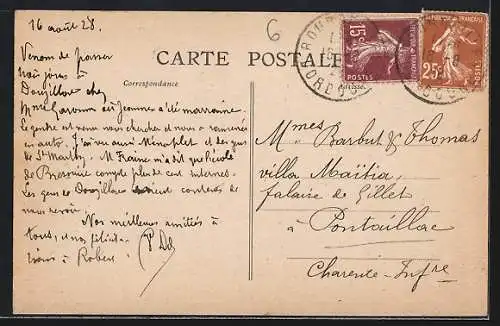 16 août 28.
6
CARTE POSTALE
Correspondance
RÉPUBLIQUE FRANÇAISE
15c
POSTES
25c
POSTES
Venons de passer
huit jours à
Douzillac chez
Mme Garoum où Jeanne a été marraine.
Le gendre est venu nous chercher et nous a ramenés
en auto. J'ai vu aussi et des gens
de St Martin. M. m'a dit que l'école
de compte plus de cent internes.
Les gens de Douzillac contents de
nous revoir.
Nos meilleures amitiés à
tous, et nos félicita-
tions à Robert.
Mmes Barbut & Thomas
villa Maïtia,
falaise de Gillet
à Pontaillac
Charente-Infre